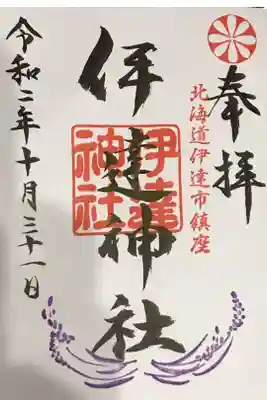 奉拝
北海道伊達市鎮座
伊達神社
伊達
神社
令和二年十月三十一日